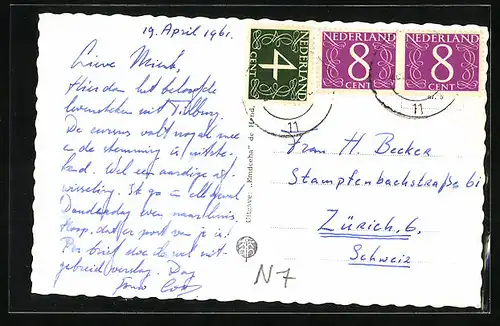 19 April 1961.
Lieve Mient,
Hierdan het beloofde
levensteken uit Tilburg.
De cursus valt nogal mee
en de stemming is uitste-
kend. Wel een aardige af-
wisseling. Ik ga in elk geval
Donderdag even naar huis.
Hoop, dat er post van je is!
Per brief doe ik wel uit-
gebreid verslag. Dag
jouw
NEDERLAND
4
CENT
NEDERLAND
8
CENT
NEDERLAND
8
CENT
11
11
Uitgave: „Kindceha” de Rond,
Frau H. Becker
Stampfenbachstraße 61
Zürich, 6.
Schweiz
N7